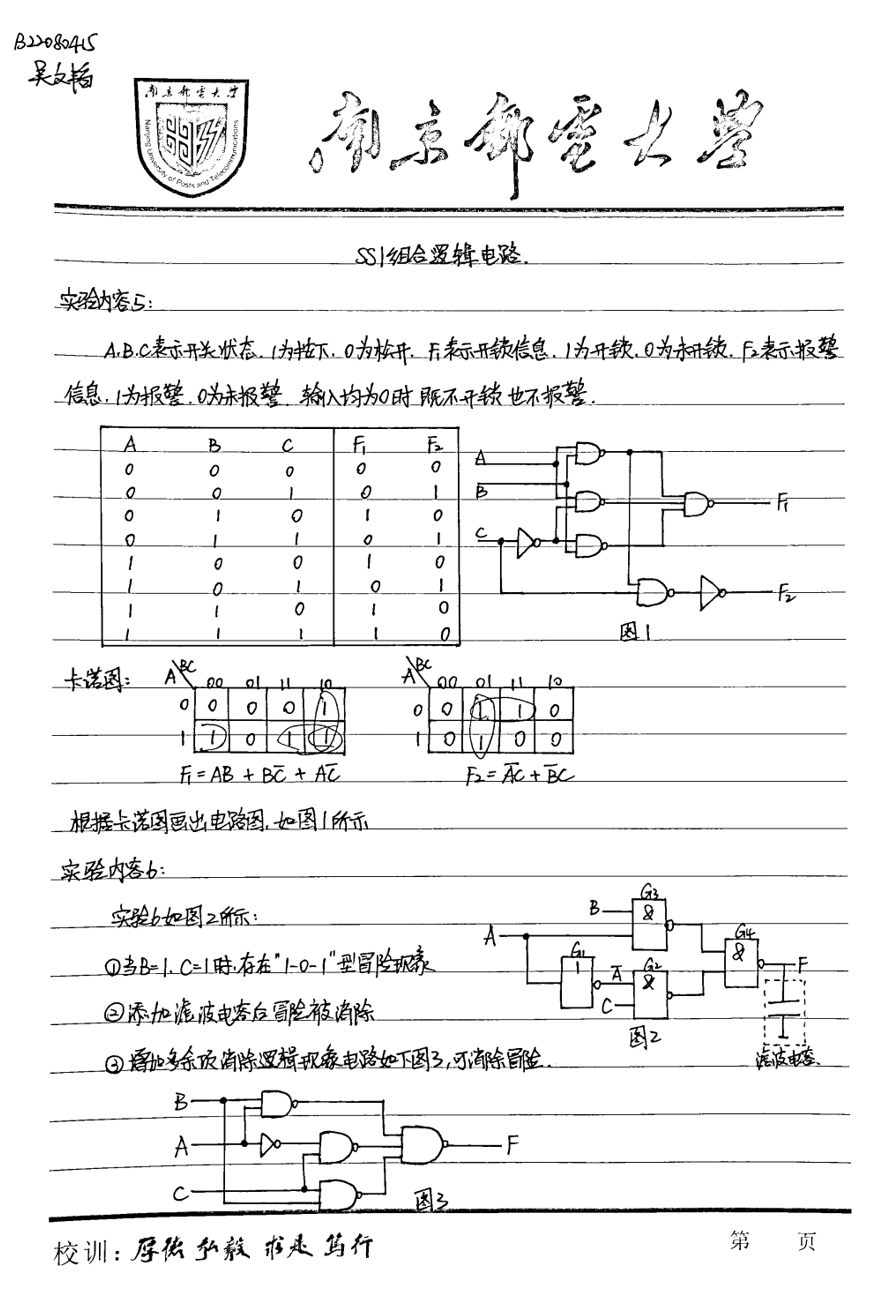 B22080415
吴文韬
南京邮电大学
Nanjing University of Posts and Telecommunications
南京邮电大学
SSI组合逻辑电路.
实验内容5:
A.B.C表示开关状态. 1为按下. 0为松开. F₁表示开锁信息. 1为开锁. 0为未开锁. F₂表示报警
信息. 1为报警. 0为未报警. 输入均为0时 既不开锁 也不报警.
A B C F₁ F₂
0 0 0 0 0
0 0 1 0 1
0 1 0 1 0
0 1 1 0 1
1 0 0 1 0
1 0 1 0 1
1 1 0 1 0
1 1 1 1 0
A
B
C
F₁
F₂
图1
卡诺图:
A\BC 00 01 11 10
0 0 0 0 1
1 1 0 1 1
F₁ = AB + BC̅ + AC̅
A\BC 00 01 11 10
0 0 1 1 0
1 0 1 0 0
F₂ = A̅C + B̅C
根据卡诺图画出电路图, 如图1所示
实验内容6:
实验6如图2所示:
①当B=1. C=1时. 存在"1-0-1"型冒险现象
②添加滤波电容后冒险被消除
③增加多余项消除逻辑现象电路如下图3, 可消除冒险.
G3
B &
A
G1
1
A̅
G2
&
C
G4
&
F
图2
滤波电容.
B
A
C
F
图3
校训: 厚德 弘毅 求是 笃行
第 页